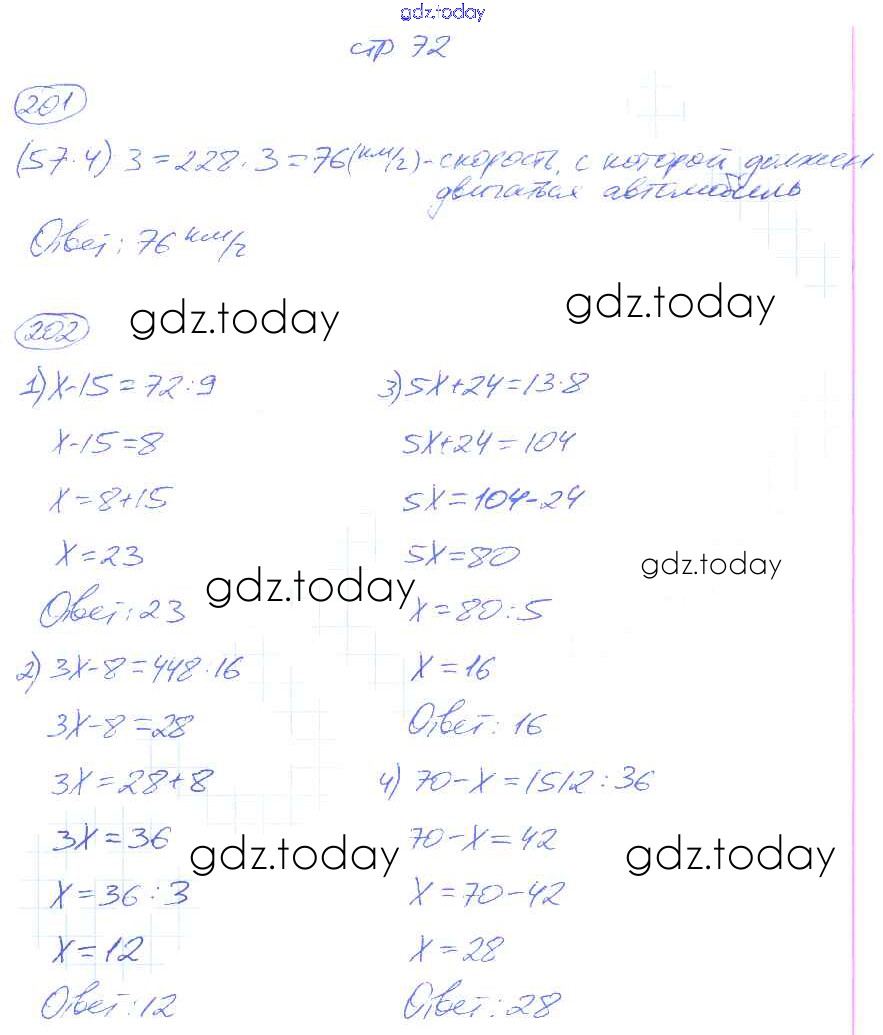 gdz.today
стр 72
201
(57·4) 3 = 228·3 = 76(км/ч) - скорость, с которой должен
двигаться автомобиль
Ответ: 76 км/ч
gdz.today
202
gdz.today
1) x-15 = 72:9
x-15=8
x=8+15
x=23
Ответ: 23
gdz.today
2) 3x-8=448·16
3x-8=28
3x=28+8
3x=36
x=36:3
x=12
Ответ: 12
gdz.today
3) 5x+24=13·8
5x+24=104
5x=104-24
5x=80
x=80:5
x=16
Ответ: 16
gdz.today
4) 70-x=1512:36
70-x=42
x=70-42
x=28
Ответ: 28
gdz.today